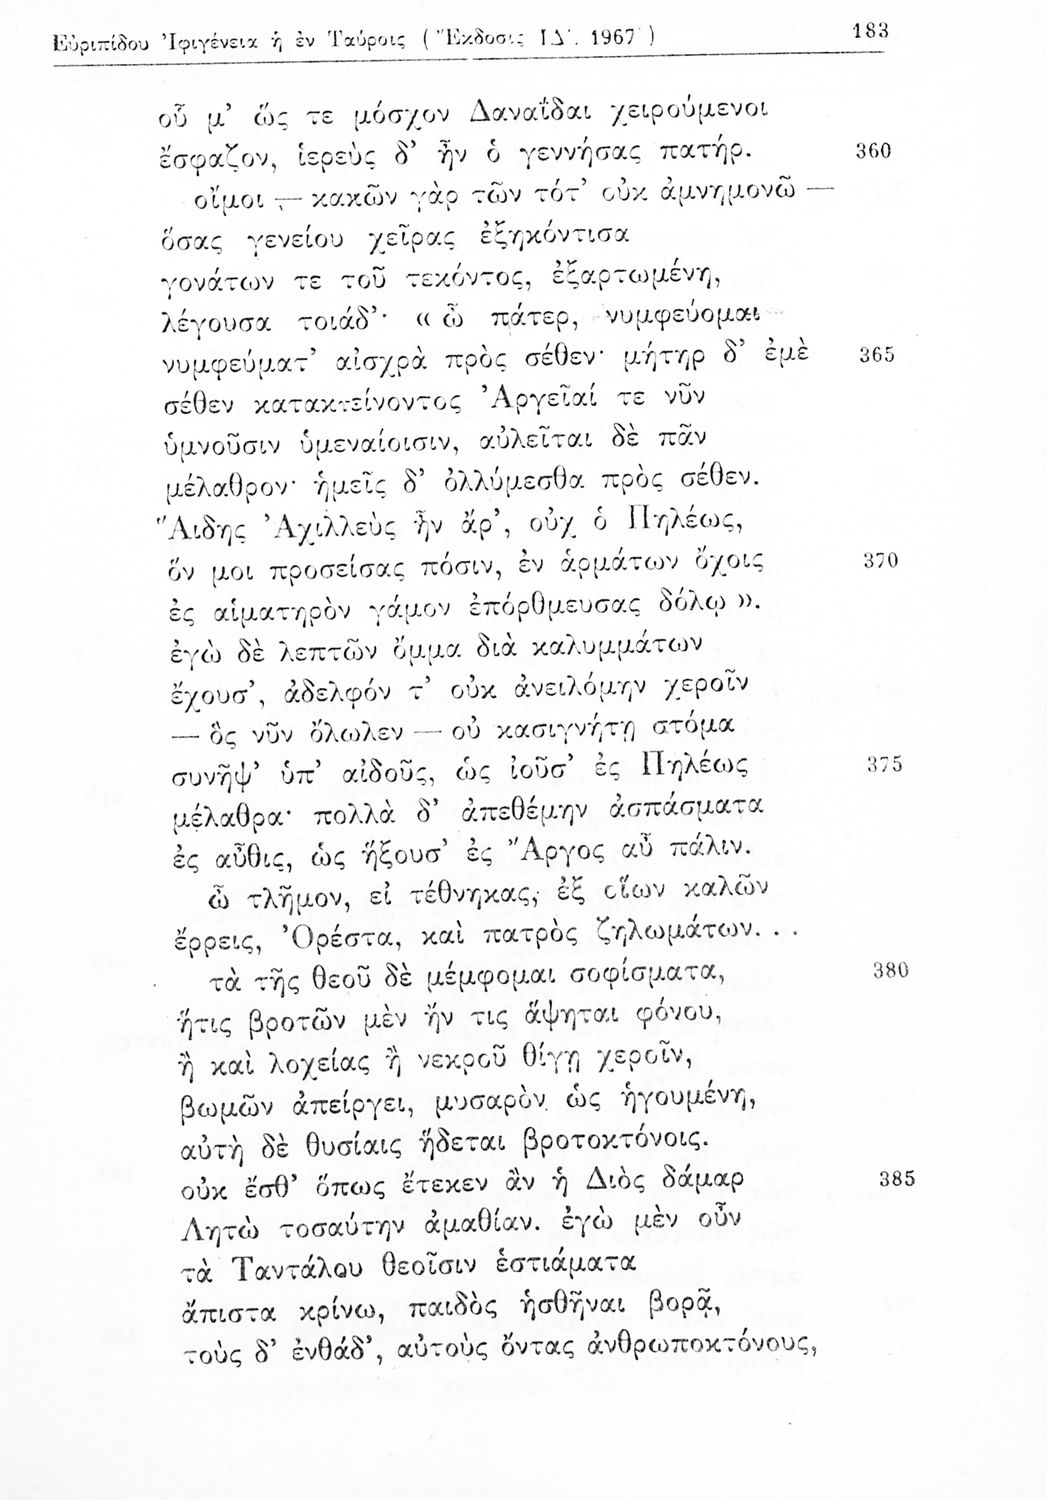 Εὐριπίδου Ἰφιγένεια ἡ ἐν Ταύροις ( Ἔκδοσις ΙΔ΄. 1967 ) 183
οὗ μ’ ὥς τε μόσχον Δαναΐδαι χειρούμενοι
ἔσφαζον, ἱερεὺς δ’ ἦν ὁ γεννήσας πατήρ. 360
οἴμοι — κακῶν γὰρ τῶν τότ’ οὐκ ἀμνημονῶ —
ὅσας γενείου χεῖρας ἐξηκόντισα
γονάτων τε τοῦ τεκόντος, ἐξαρτωμένη,
λέγουσα τοιάδ’· « ὦ πάτερ, νυμφεύομαι
νυμφεύματ’ αἰσχρὰ πρὸς σέθεν· μήτηρ δ’ ἐμὲ 365
σέθεν κατακτείνοντος Ἀργεῖαί τε νῦν
ὑμνοῦσιν ὑμεναίοισιν, αὐλεῖται δὲ πᾶν
μέλαθρον· ἡμεῖς δ’ ὀλλύμεσθα πρὸς σέθεν.
Ἅιδης Ἀχιλλεὺς ἦν ἄρ’, οὐχ ὁ Πηλέως,
ὅν μοι προσείσας πόσιν, ἐν ἁρμάτων ὄχοις 370
ἐς αἱματηρὸν γάμον ἐπόρθμευσας δόλῳ ».
ἐγὼ δὲ λεπτῶν ὄμμα διὰ καλυμμάτων
ἔχουσ’, ἀδελφόν τ’ οὐκ ἀνειλόμην χεροῖν
— ὃς νῦν ὄλωλεν — οὐ κασιγνήτῃ στόμα
συνῆψ’ ὑπ’ αἰδοῦς, ὡς ἰοῦσ’ ἐς Πηλέως 375
μέλαθρα· πολλὰ δ’ ἀπεθέμην ἀσπάσματα
ἐς αὖθις, ὡς ἥξουσ’ ἐς Ἄργος αὖ πάλιν.
ὦ τλῆμον, εἰ τέθνηκας, ἐξ οἵων καλῶν
ἔρρεις, Ὀρέστα, καὶ πατρὸς ζηλωμάτων. . .
τὰ τῆς θεοῦ δὲ μέμφομαι σοφίσματα, 380
ἥτις βροτῶν μὲν ἤν τις ἅψηται φόνου,
ἢ καὶ λοχείας ἢ νεκροῦ θίγῃ χεροῖν,
βωμῶν ἀπείργει, μυσαρὸν ὡς ἡγουμένη,
αὐτὴ δὲ θυσίαις ἥδεται βροτοκτόνοις.
οὐκ ἔσθ’ ὅπως ἔτεκεν ἂν ἡ Διὸς δάμαρ 385
Λητὼ τοσαύτην ἀμαθίαν. ἐγὼ μὲν οὖν
τὰ Ταντάλου θεοῖσιν ἑστιάματα
ἄπιστα κρίνω, παιδὸς ἡσθῆναι βορᾷ,
τοὺς δ’ ἐνθάδ’, αὐτοὺς ὄντας ἀνθρωποκτόνους,